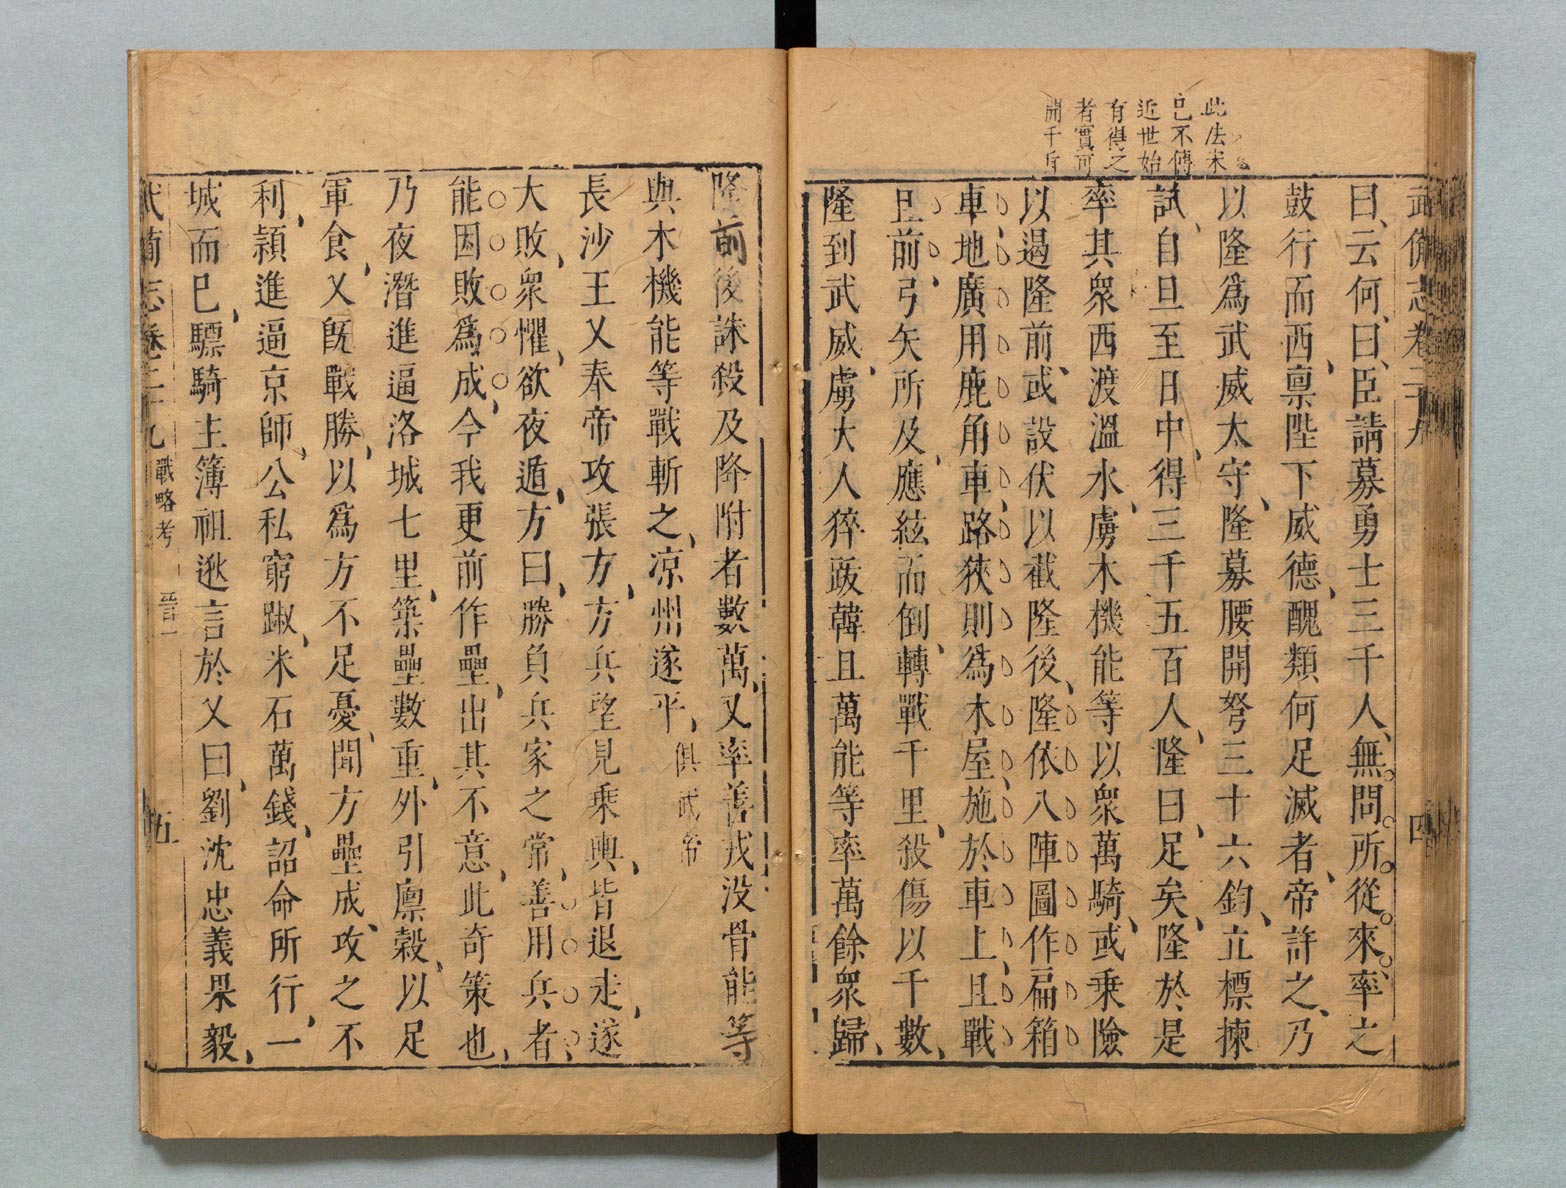 此法宋
已不傳
近世始
有得之
者實可
開千斤
武備志卷二十九
四
曰云何曰臣請募勇士三千人無問所從來率之
鼓行而西禀陛下威德醜類何足滅者帝許之乃
以隆爲武威太守隆募腰開弩三十六鈞立標揀
試自旦至日中得三千五百人隆曰足矣隆於是
率其衆西渡溫水虜木機能等以衆萬騎或乗險
以遏隆前或設伏以截隆後隆依八陣圖作扁箱
車地廣用鹿角車路狹則爲木屋施於車上且戰
且前弓矢所及應絃而倒轉戰千里殺傷以千數
隆到武威虜大人猝跋韓且萬能等率萬餘衆歸
隆前後誅殺及降附者數萬又率善戎没骨能等
與木機能等戰斬之凉州遂平俱武帝
長沙王乂奉帝攻張方方兵望見乗輿皆退走遂
大敗衆懼欲夜遁方曰勝負兵家之常善用兵者
能因敗爲成今我更前作壘出其不意此奇策也
乃夜潛進逼洛城七里築壘數重外引廪榖以足
軍食乂旣戰勝以爲方不足憂聞方壘成攻之不
利頴進逼京師公私窮踧米石萬錢詔命所行一
城而已驃騎主簿祖逖言於乂曰劉沈忠義果毅
武備志卷二十九
戰略考
晉一
五